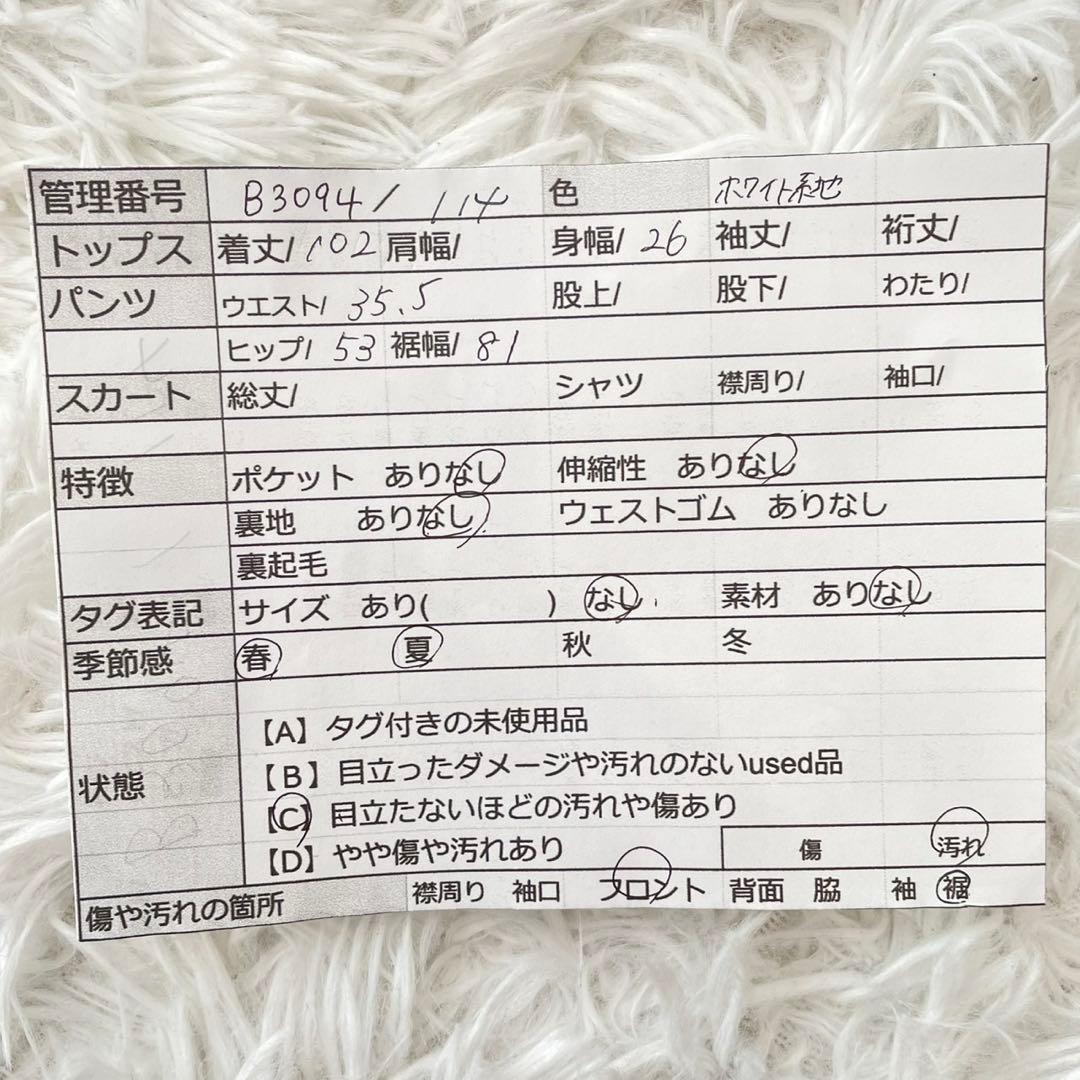 管理番号 B3094/ 114 色 ホワイト系地
トップス 着丈/ 102 肩幅/ 身幅/ 26 袖丈/ 裄丈/
パンツ ウエスト/ 35.5 股上/ 股下/ わたり/
ヒップ/ 53 裾幅/ 81
スカート 総丈/ シャツ 襟周り/ 袖口/
特徴 ポケット ありなし 伸縮性 ありなし
裏地 ありなし ウェストゴム ありなし
裏起毛
タグ表記 サイズ あり( ) なし 素材 ありなし
季節感 春 夏 秋 冬
状態
【A】タグ付きの未使用品
【B】目立ったダメージや汚れのないused品
【C】目立たないほどの汚れや傷あり
【D】やや傷や汚れあり 傷 汚れ
傷や汚れの箇所 襟周り 袖口 フロント 背面 脇 袖 裾